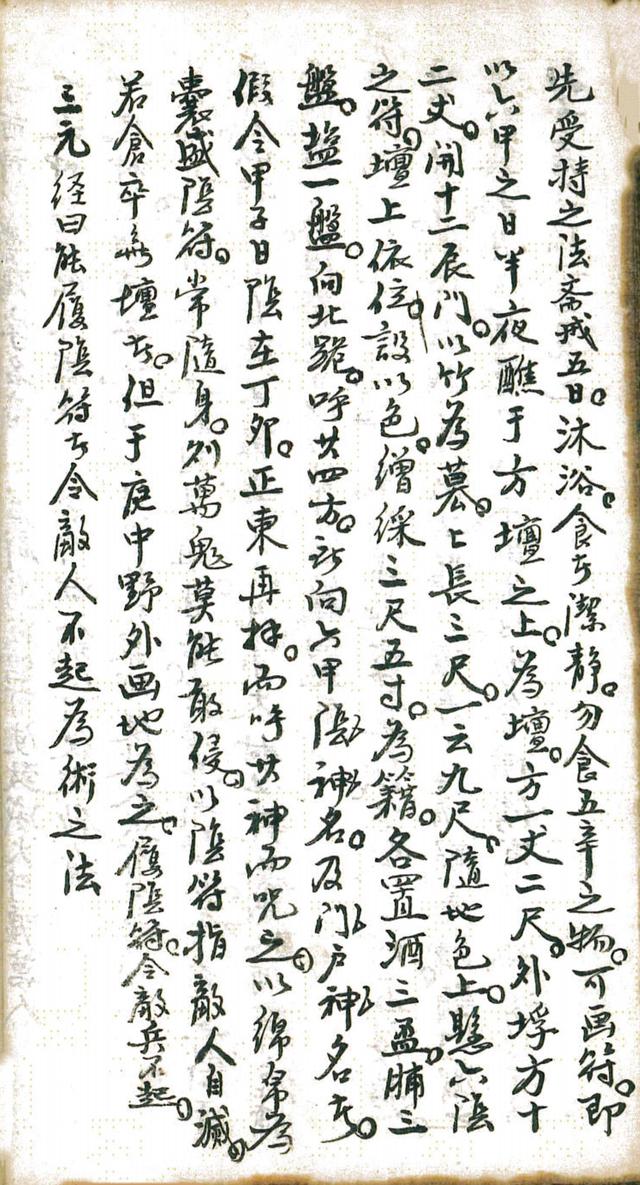 先受持之法斋戒五日。沐浴。食ち潔静。勿食五辛之物。可画符。即
以六甲之日半夜醮于方壇之上。為壇。方一丈二尺。外埒方十
二丈。開十二辰門。以竹為墓。上長三尺。一云九尺。随地色上。懸六陰
之符。壇上依位設以色。繒綵三尺五寸。為籍。各置酒三盃。脯三
盤。塩一盤。向北跪。呼其四方。訖向六甲陰神名。及門戸神名ち。
假令甲子日陰在丁卯。正東再拝。而呼其神而呪之。以綿帛為
囊盛陰符。常随身。则萬鬼莫能敢侵。以陰符指敵人自滅。
若倉卒無壇ち。但于庭中野外画地為之。履陰符。令敵兵不起。
三元経曰能履陰符ち令敵人不起為術之法